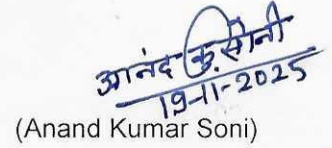 आनंद कु. सोनी
19-11-2025
(Anand Kumar Soni)